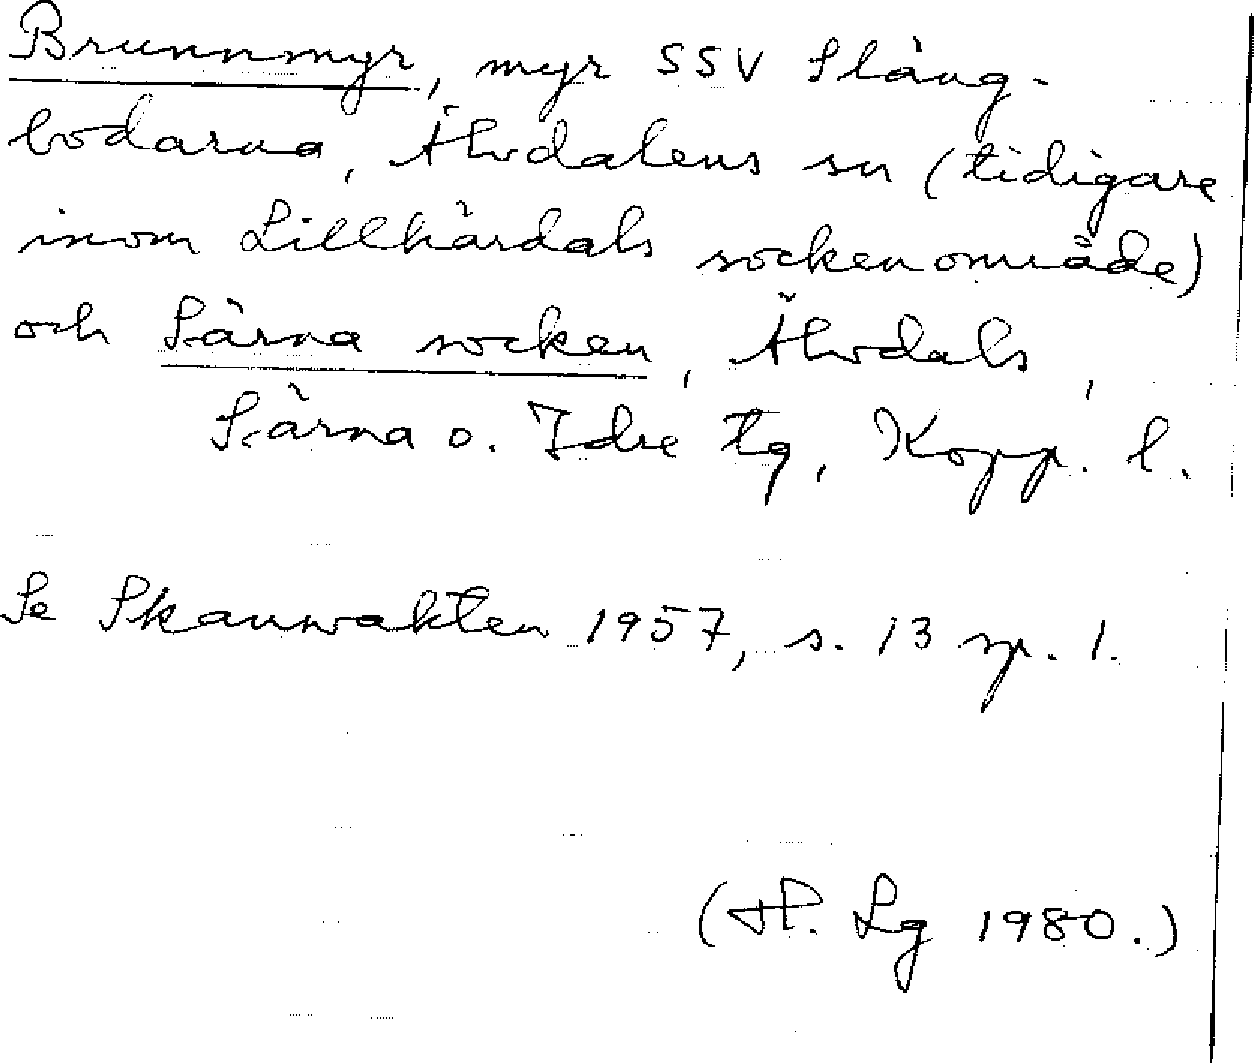 Brunnmyr, myr SSV Släng-
bodarna, Älvdalens sn (tidigare
inom Lillhärdals sockenområde)
och Särna socken, Älvdals,
Särna o. Idre tg, Kopp. l.
Se Skannvakten 1957, s. 13 sp. 1.
(H. Lg 1980.)